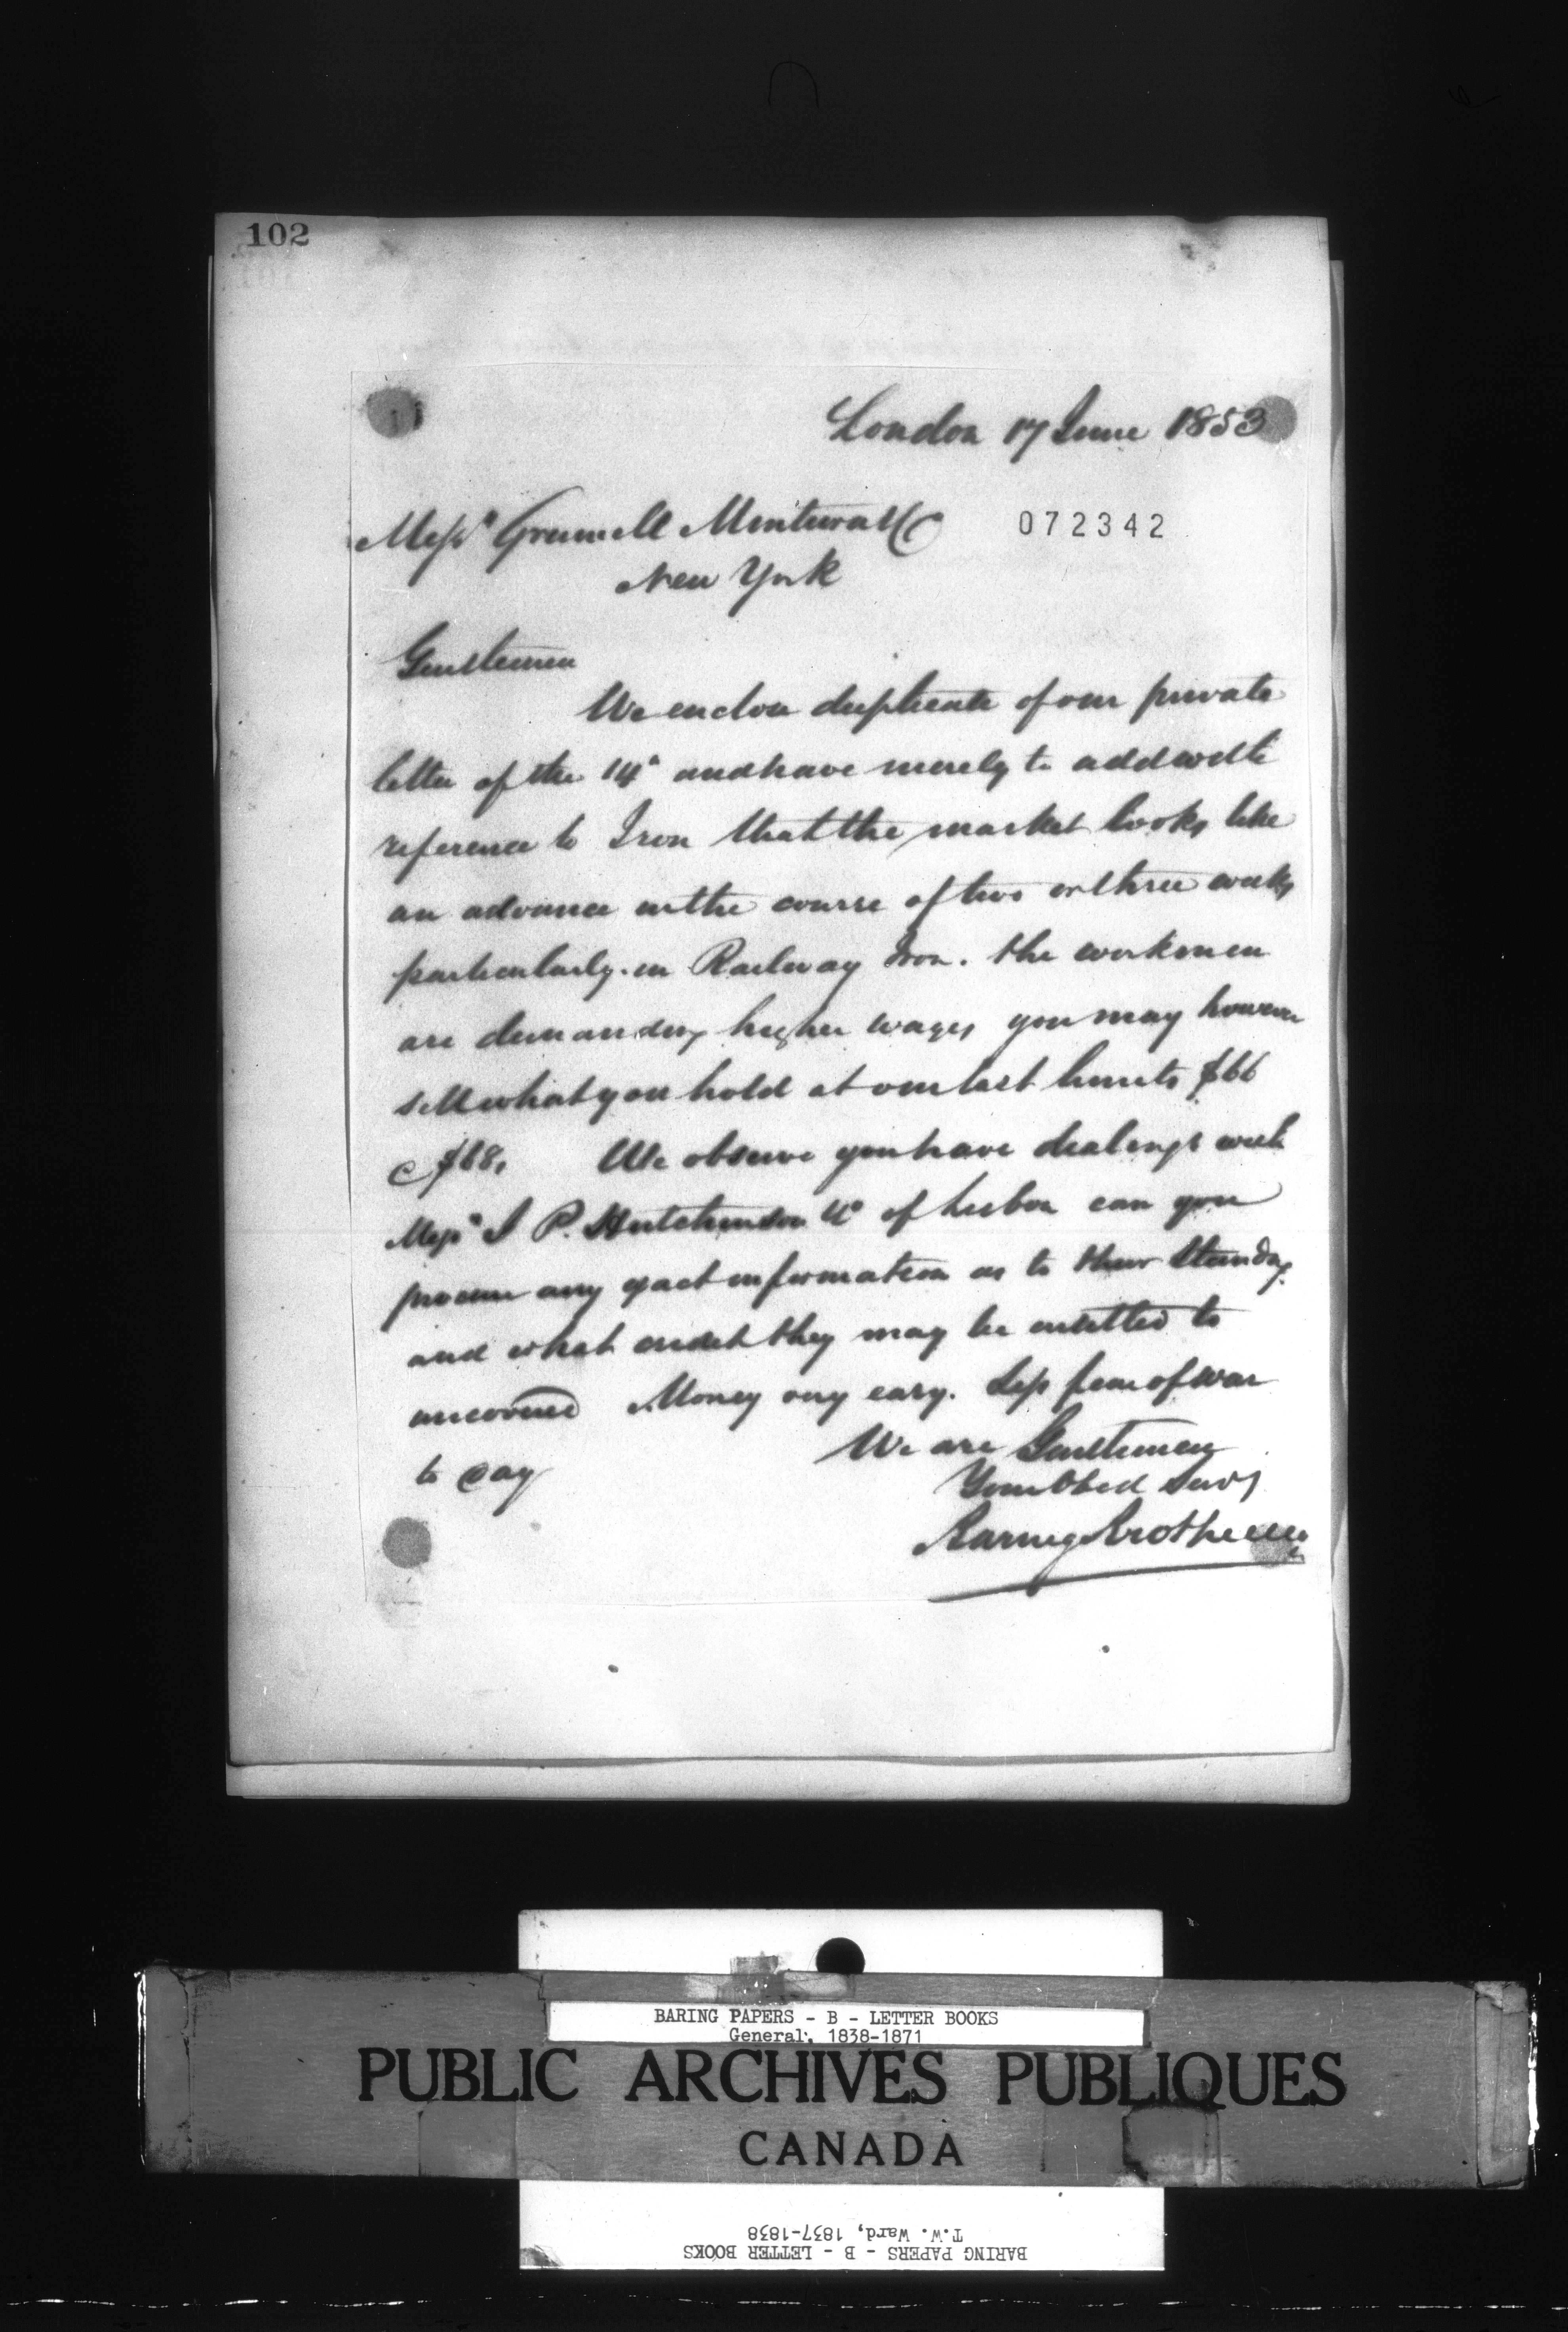 102
London 17 June 1853
Mess<sup>rs</sup> Grinnell Minturn & Co
072342
New York
Gentlemen
We enclose duplicate of our private
letter of the 14<sup>th</sup> and have merely to add with
reference to Iron that the market looks like
an advance in the course of two or three weeks
particularly in Railway Iron. the workmen
are demanding higher wages you may however
sell what you hold at our last limits $66
@ $68. We observe you have dealings with
Mess<sup>rs</sup> I P. Hutchinson & Co of Lisbon can you
procure any exact information as to their standing
and what credit they may be entitled to
uncovered Money very easy. Less fear of war
to day
We are Gentlemen
Your Obed Servts
Baring Brothers & Co
BARING PAPERS - B - LETTER BOOKS
General, 1838-1871
PUBLIC ARCHIVES PUBLIQUES
CANADA
T.W. Ward, 1837-1838
BARING PAPERS - B - LETTER BOOKS